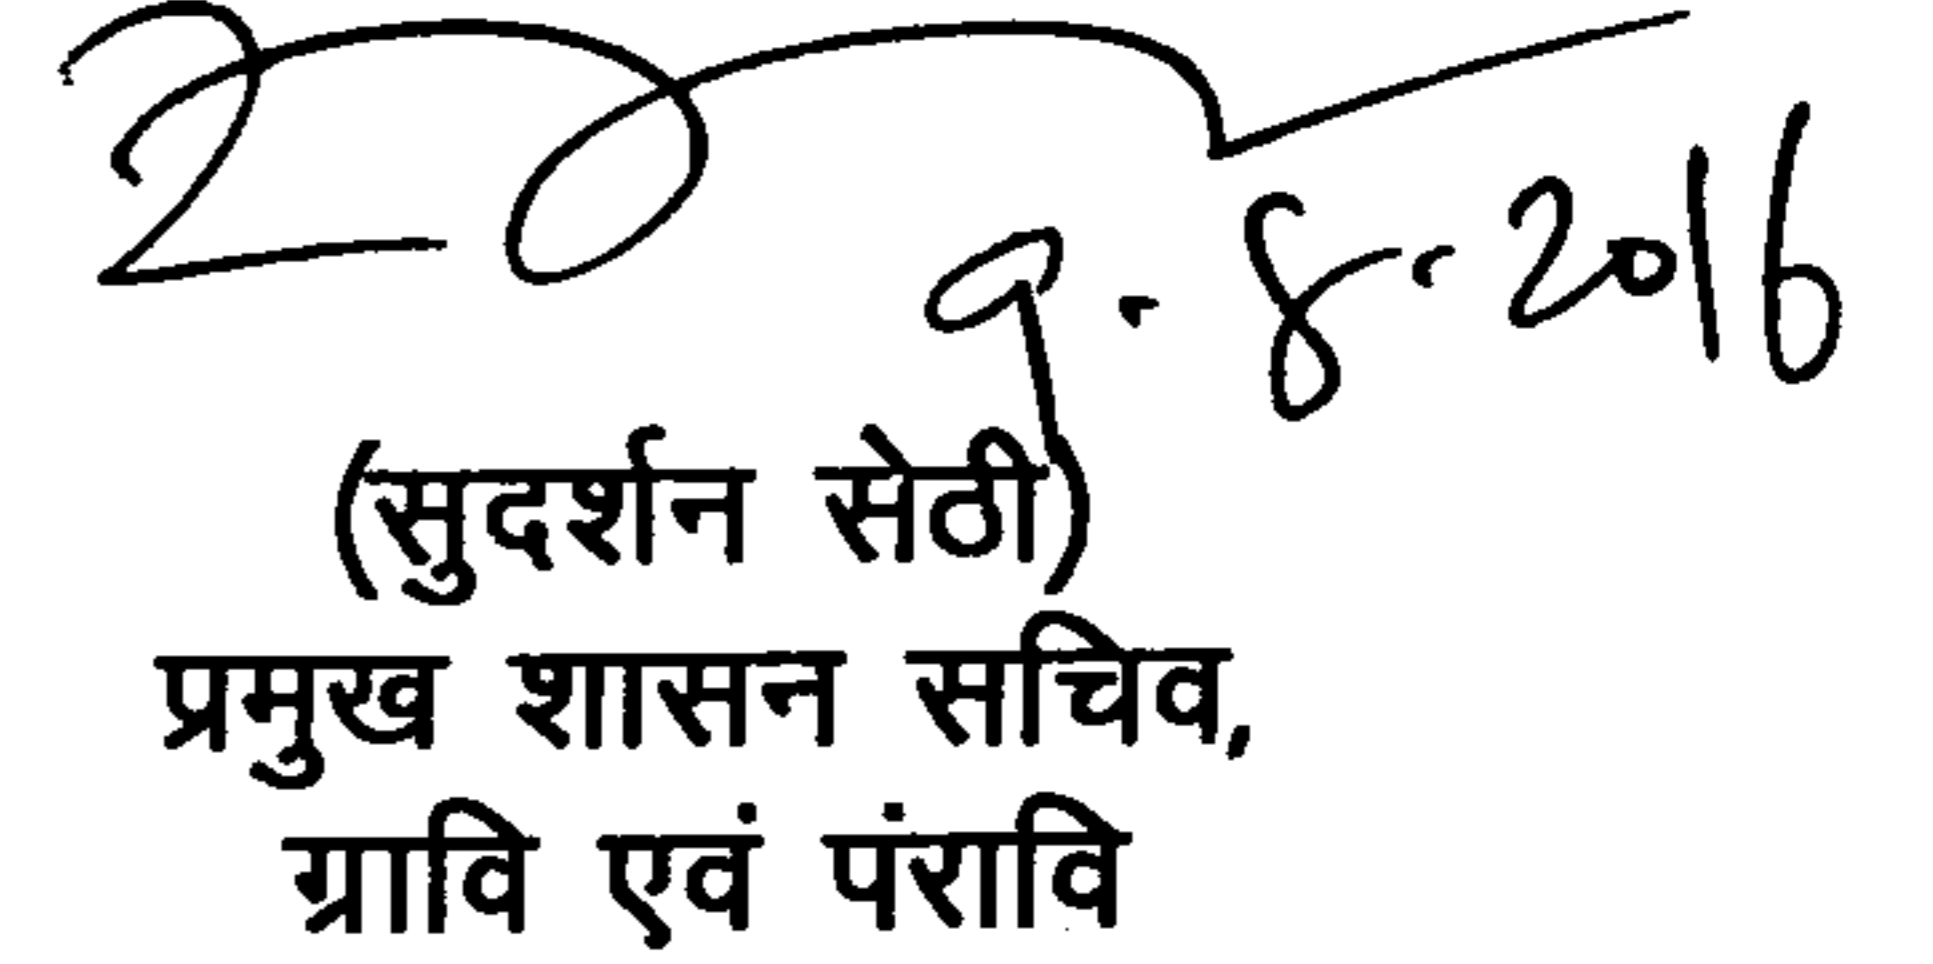 9.8.2016
(सुदर्शन सेठी)
प्रमुख शासन सचिव,
ग्रावि एवं पंरावि